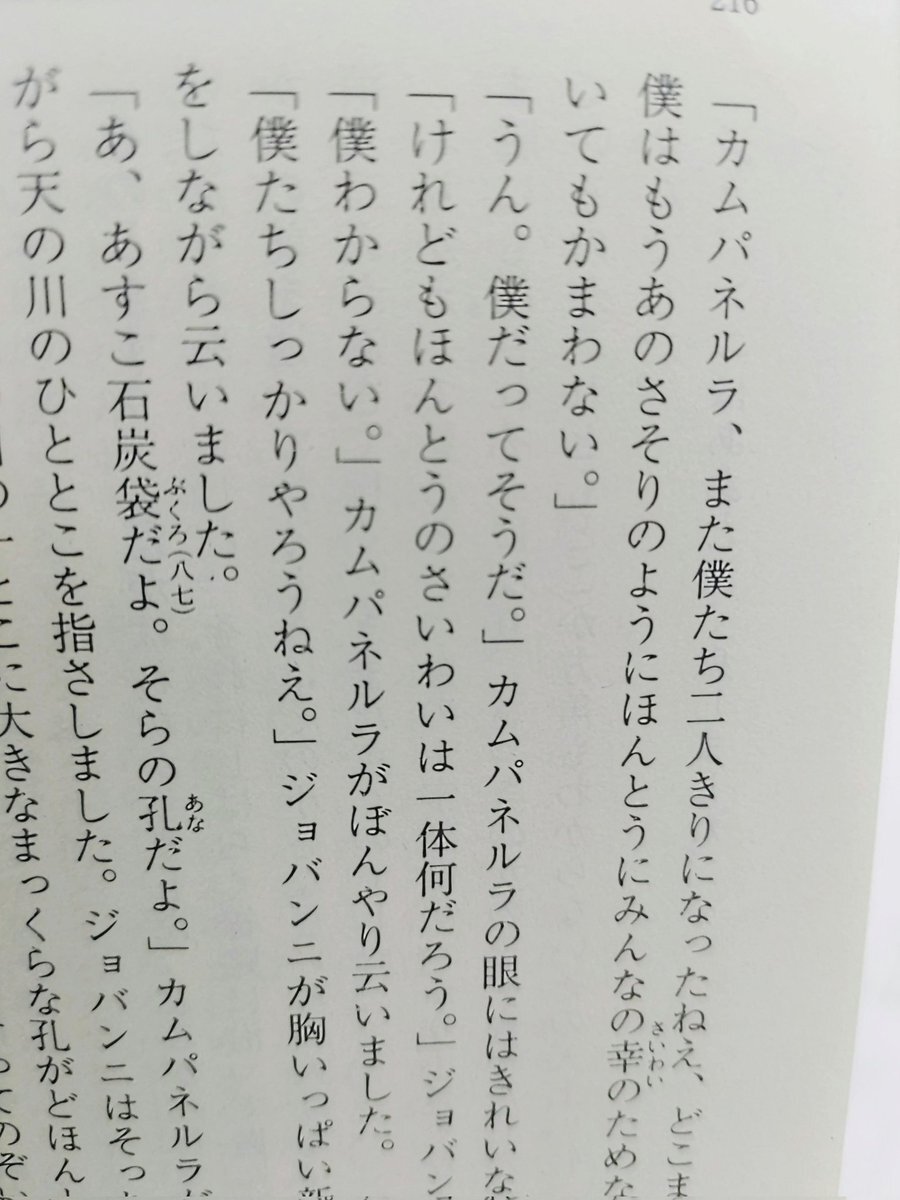 216
「カムパネルラ、また僕たち二人きりになったねえ、どこま
僕はもうあのさそりのようにほんとうにみんなの幸のためな
さいわい
いてもかまわない。」
「うん。僕だってそうだ。」カムパネルラの眼にはきれいな
「けれどもほんとうのさいわいは一体何だろう。」ジョバン
「僕わからない。」カムパネルラがぼんやり云いました。
「僕たちしっかりやろうねえ。」ジョバンニが胸いっぱい新
をしながら云いました。
「あ、あすこ石炭袋だよ。そらの孔だよ。」カムパネルラが
ぶくろ(八七)
あな
がら天の川のひととこを指さしました。ジョバンニはそっ
に大きなまっくらな孔がどほん